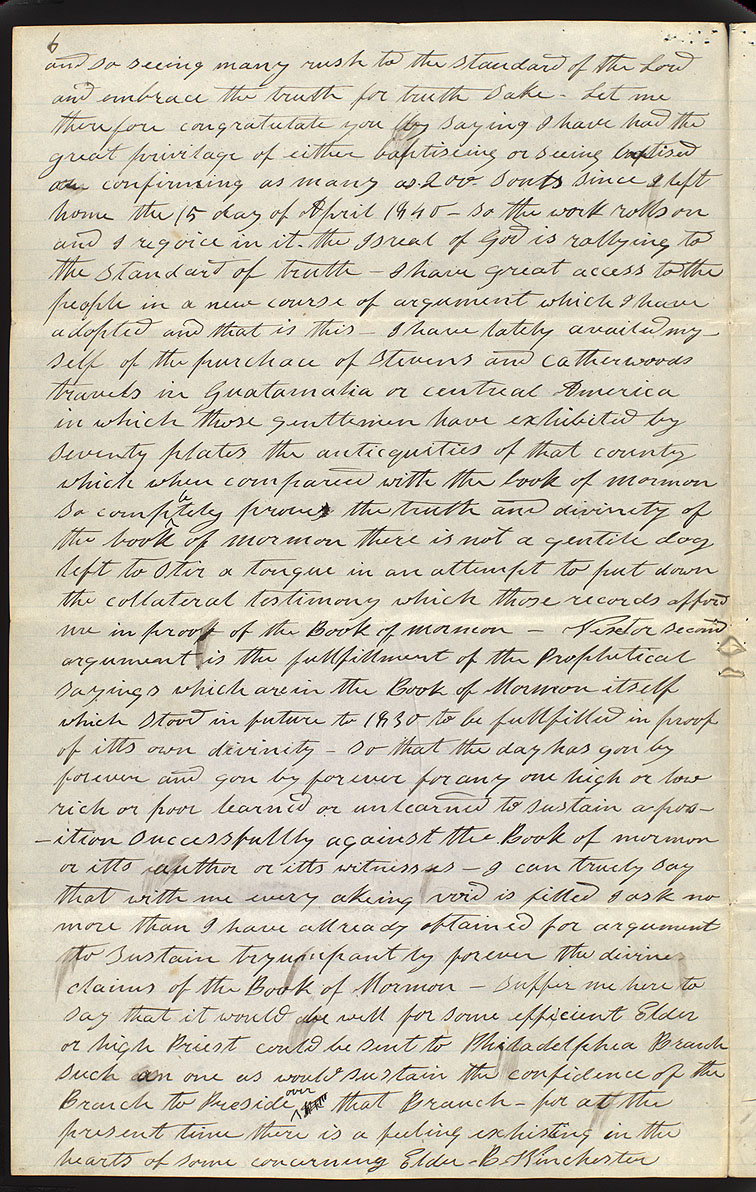 6
and so seeing many rush to the standard of the Lord
and embrace the truth for truth sake - Let me
therefore congratutate you by saying I have had the
great privilage of either baptiseing or seeing baptised
or confirming as many as 200 Souls Since I left
home the 15 day of April 1840 - so the work rolls on
and I rejoice in it - the Isreal of God is rallying to
the Standard of truth - I have great access to the
people in a new course of argument which I have
adopted and that is this - I have lately availed my-
self of the purchace of Stevens and Catherwoods
travels in Guatamalia or centreal America
in which those gentlemen have exhibited by
Seventy plates the anticquities of that county
which when compared with the book of mormon
so completely proves the truth and divinity of
the book of mormon there is not a gentile dog
left to Stir a tongue in an attempt to put down
the collateral testimony which those records afford
me in proof of the Book of mormon - Next or second
argument is the fullfillment of the Prophetical
sayings which are in the Book of Mormon itself
which stood in future to 1830 to be fullfilled in proof
of itts own divinity - so that the day has gon by
forever and gon by forever for any one high or low
rich or poor learned or unlearned to sustain a pos-
-ition Successfullly against the Book of mormon
or itts author or itts witnesses - I can truely say
that with me every akeing void is filled I ask no
more than I have allready obtained for argument
to Sustain tryumpantly forever the divine
claims of the Book of Mormon - Suffer me here to
say that it would be well for some efficient Elder
or high Priest could be sent to Philadelphea Branch
such an one as would sustain the confidence of the
Branch to Preside over that Branch - for at the
present time there is a feeling exhisting in the
hearts of some concerning Elder - B. Winchester